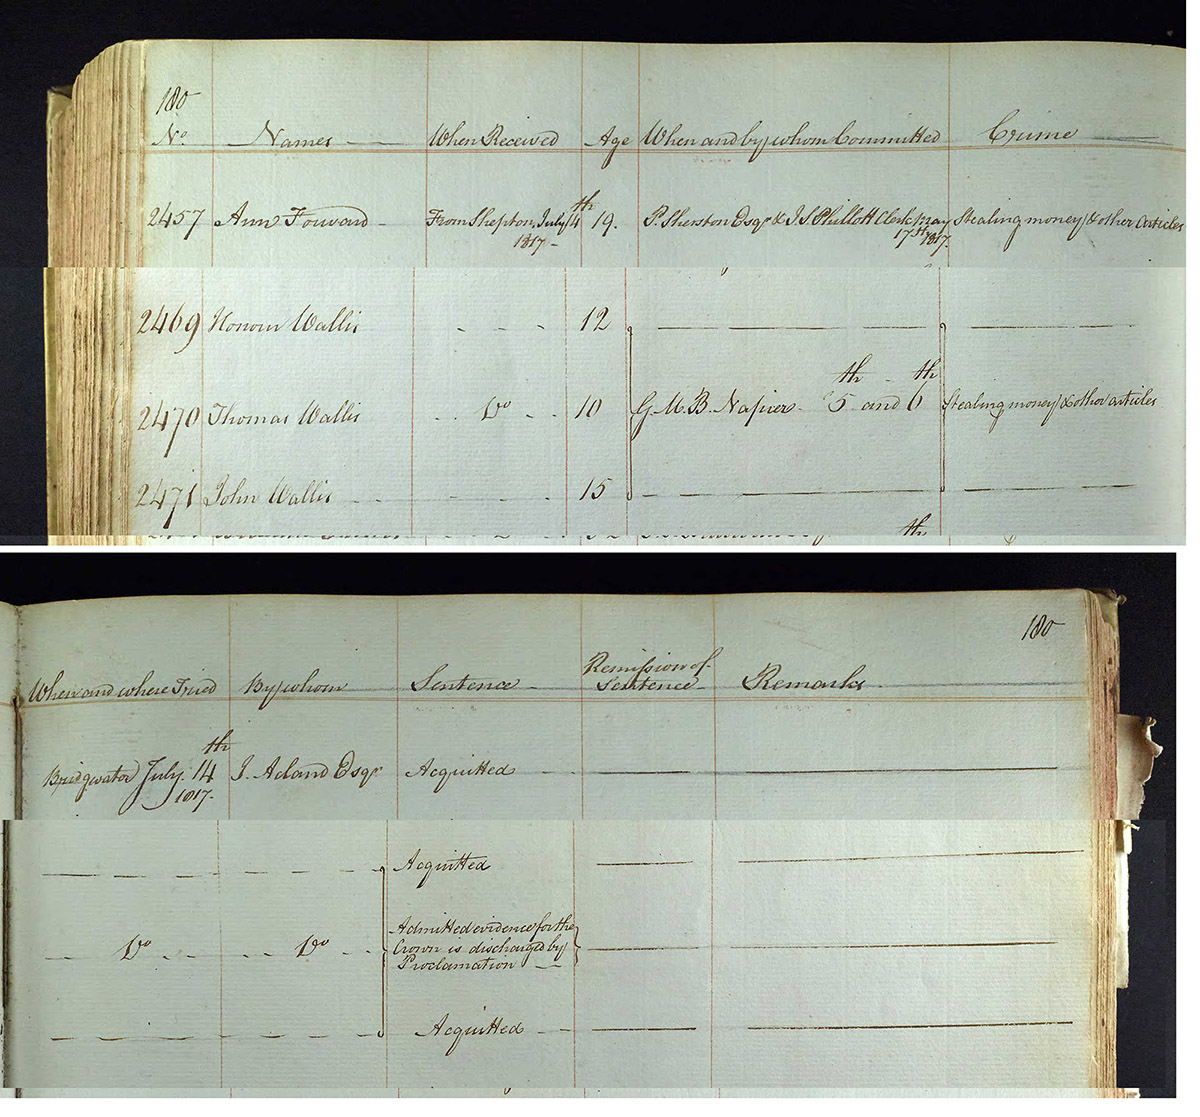 180
No. Names When Received Age When and by whom Committed Crime
2457 Ann Forward From Shepton, July 14th 19. P. Sherston Esqr & J. S. Phillott Clerk, May Stealing money & other articles
1817 17th 1817.
2469 Honour Wallis 12
2470 Thomas Wallis Do 10 G. M. B. Napier 5th and 6th Stealing money & other articles
2471 John Wallis 15
th
180
When and where Tried By whom Sentence Remission of Sentence Remarks
Bridgwater July 14th J. Acland Esqr Acquitted
1817.
Acquitted
Do Do Admitted evidence for the
Crown is discharged by
Proclamation
Acquitted